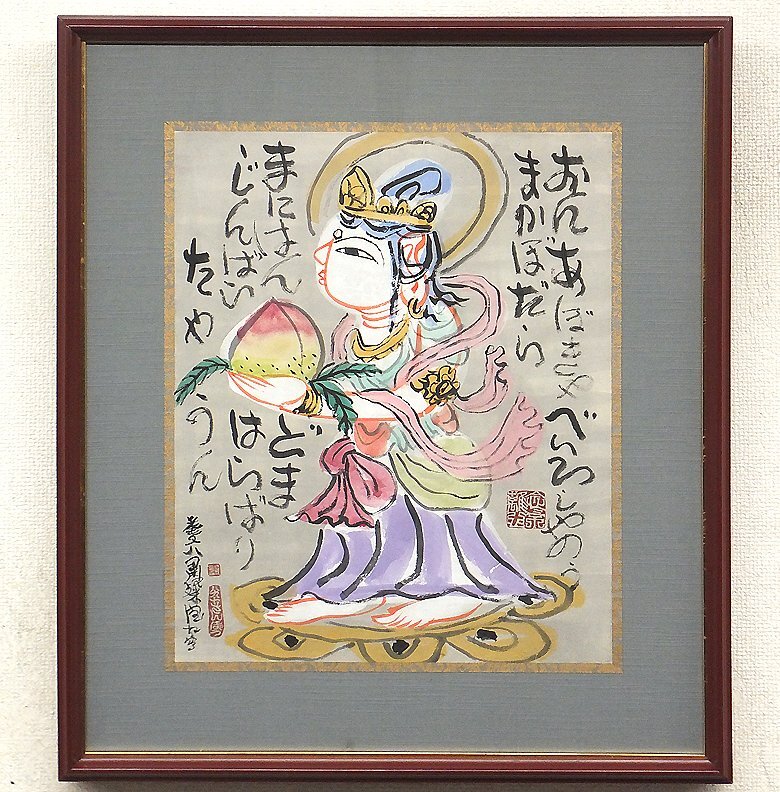 おんあぼきゃべいろしゃのう
まかぼだら
まにはん
どま
じんばい
はらばり
たや
うん